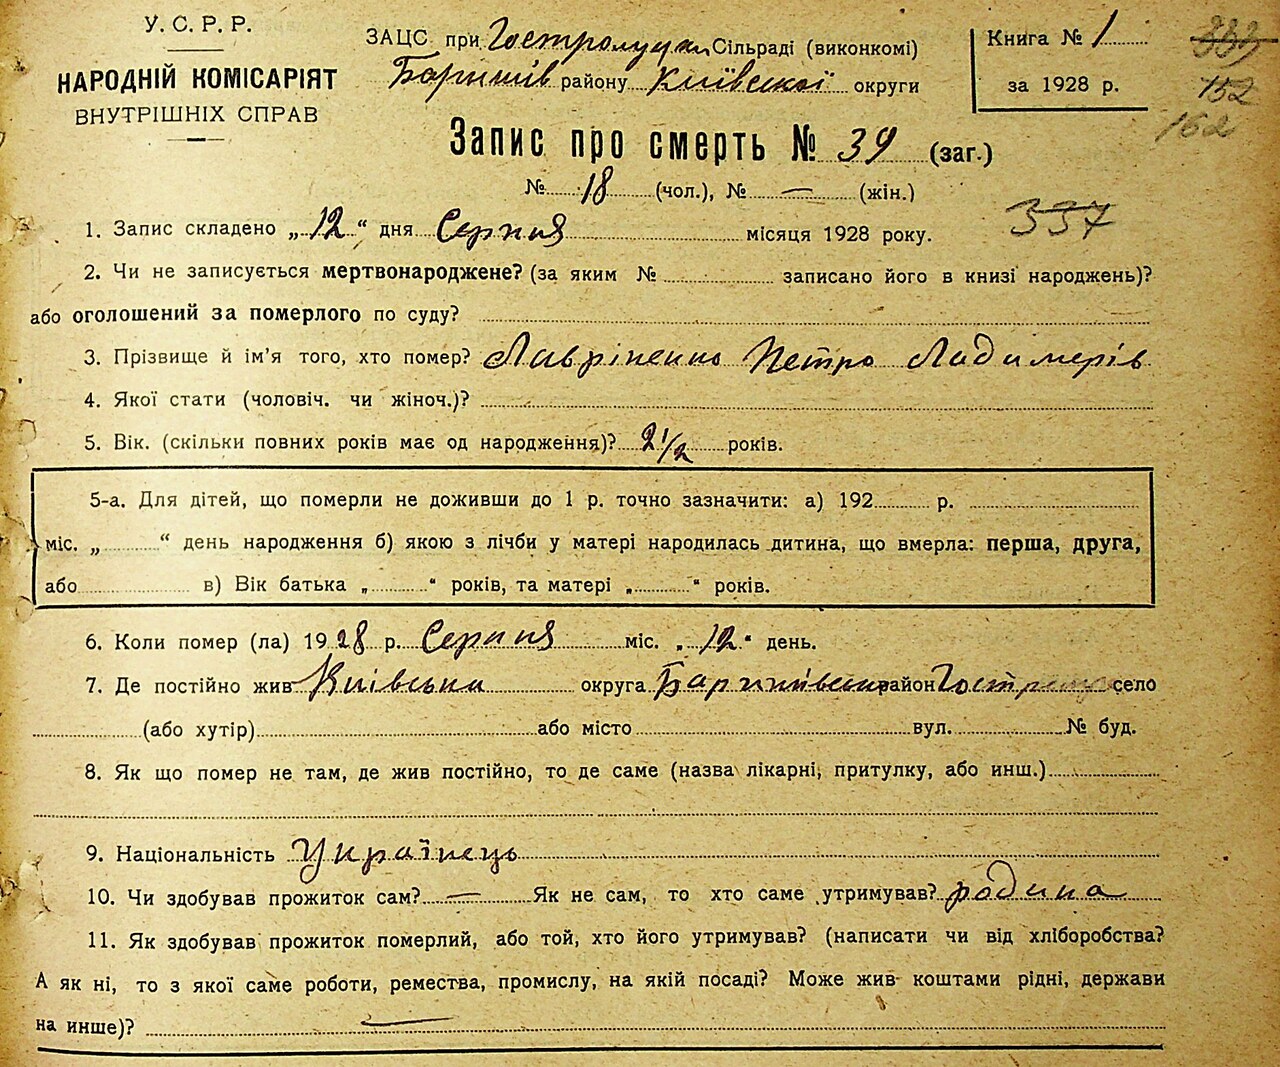 У. С. Р. Р.
НАРОДНІЙ КОМІСАРІЯТ
ВНУТРІШНІХ СПРАВ
ЗАЦС при Гостролуцкім Сільраді (виконкомі)
Баришів району Київської округи
Книга № 1
за 1928 р.
333
152
162
Запис про смерть № 39 (заг.)
№ 18 (чол.), № — (жін.)
337
1. Запис складено „12“ дня Серпня місяця 1928 року.
2. Чи не записується мертвонароджене? (за яким № записано його в книзі народжень)?
або оголошений за померлого по суду?
3. Прізвище й ім'я того, хто помер? Лавріненко Петро Ладимерів
4. Якої стати (чоловіч. чи жіноч.)?
5. Вік. (скільки повних років має од народження)? 2 1/2 років.
5-а. Для дітей, що померли не доживши до 1 р. точно зазначити: а) 192 р.
міс. „ “ день народження б) якою з лічби у матері народилась дитина, що вмерла: перша, друга,
або в) Вік батька „ “ років, та матері „ “ років.
6. Коли помер (ла) 1928 р. Серпня міс. „12“ день.
7. Де постійно жив Київська округа Баришівськ район село
(або хутір) або місто вул. № буд.
8. Як що помер не там, де жив постійно, то де саме (назва лікарні, притулку, або инш.)
9. Національність Українець
10. Чи здобував прожиток сам? — Як не сам, то хто саме утримував? родина
11. Як здобував прожиток померлий, або той, хто його утримував? (написати чи від хліборобства?
А як ні, то з якої саме роботи, ремества, промислу, на якій посаді? Може жив коштами рідні, держави
на инше)? —